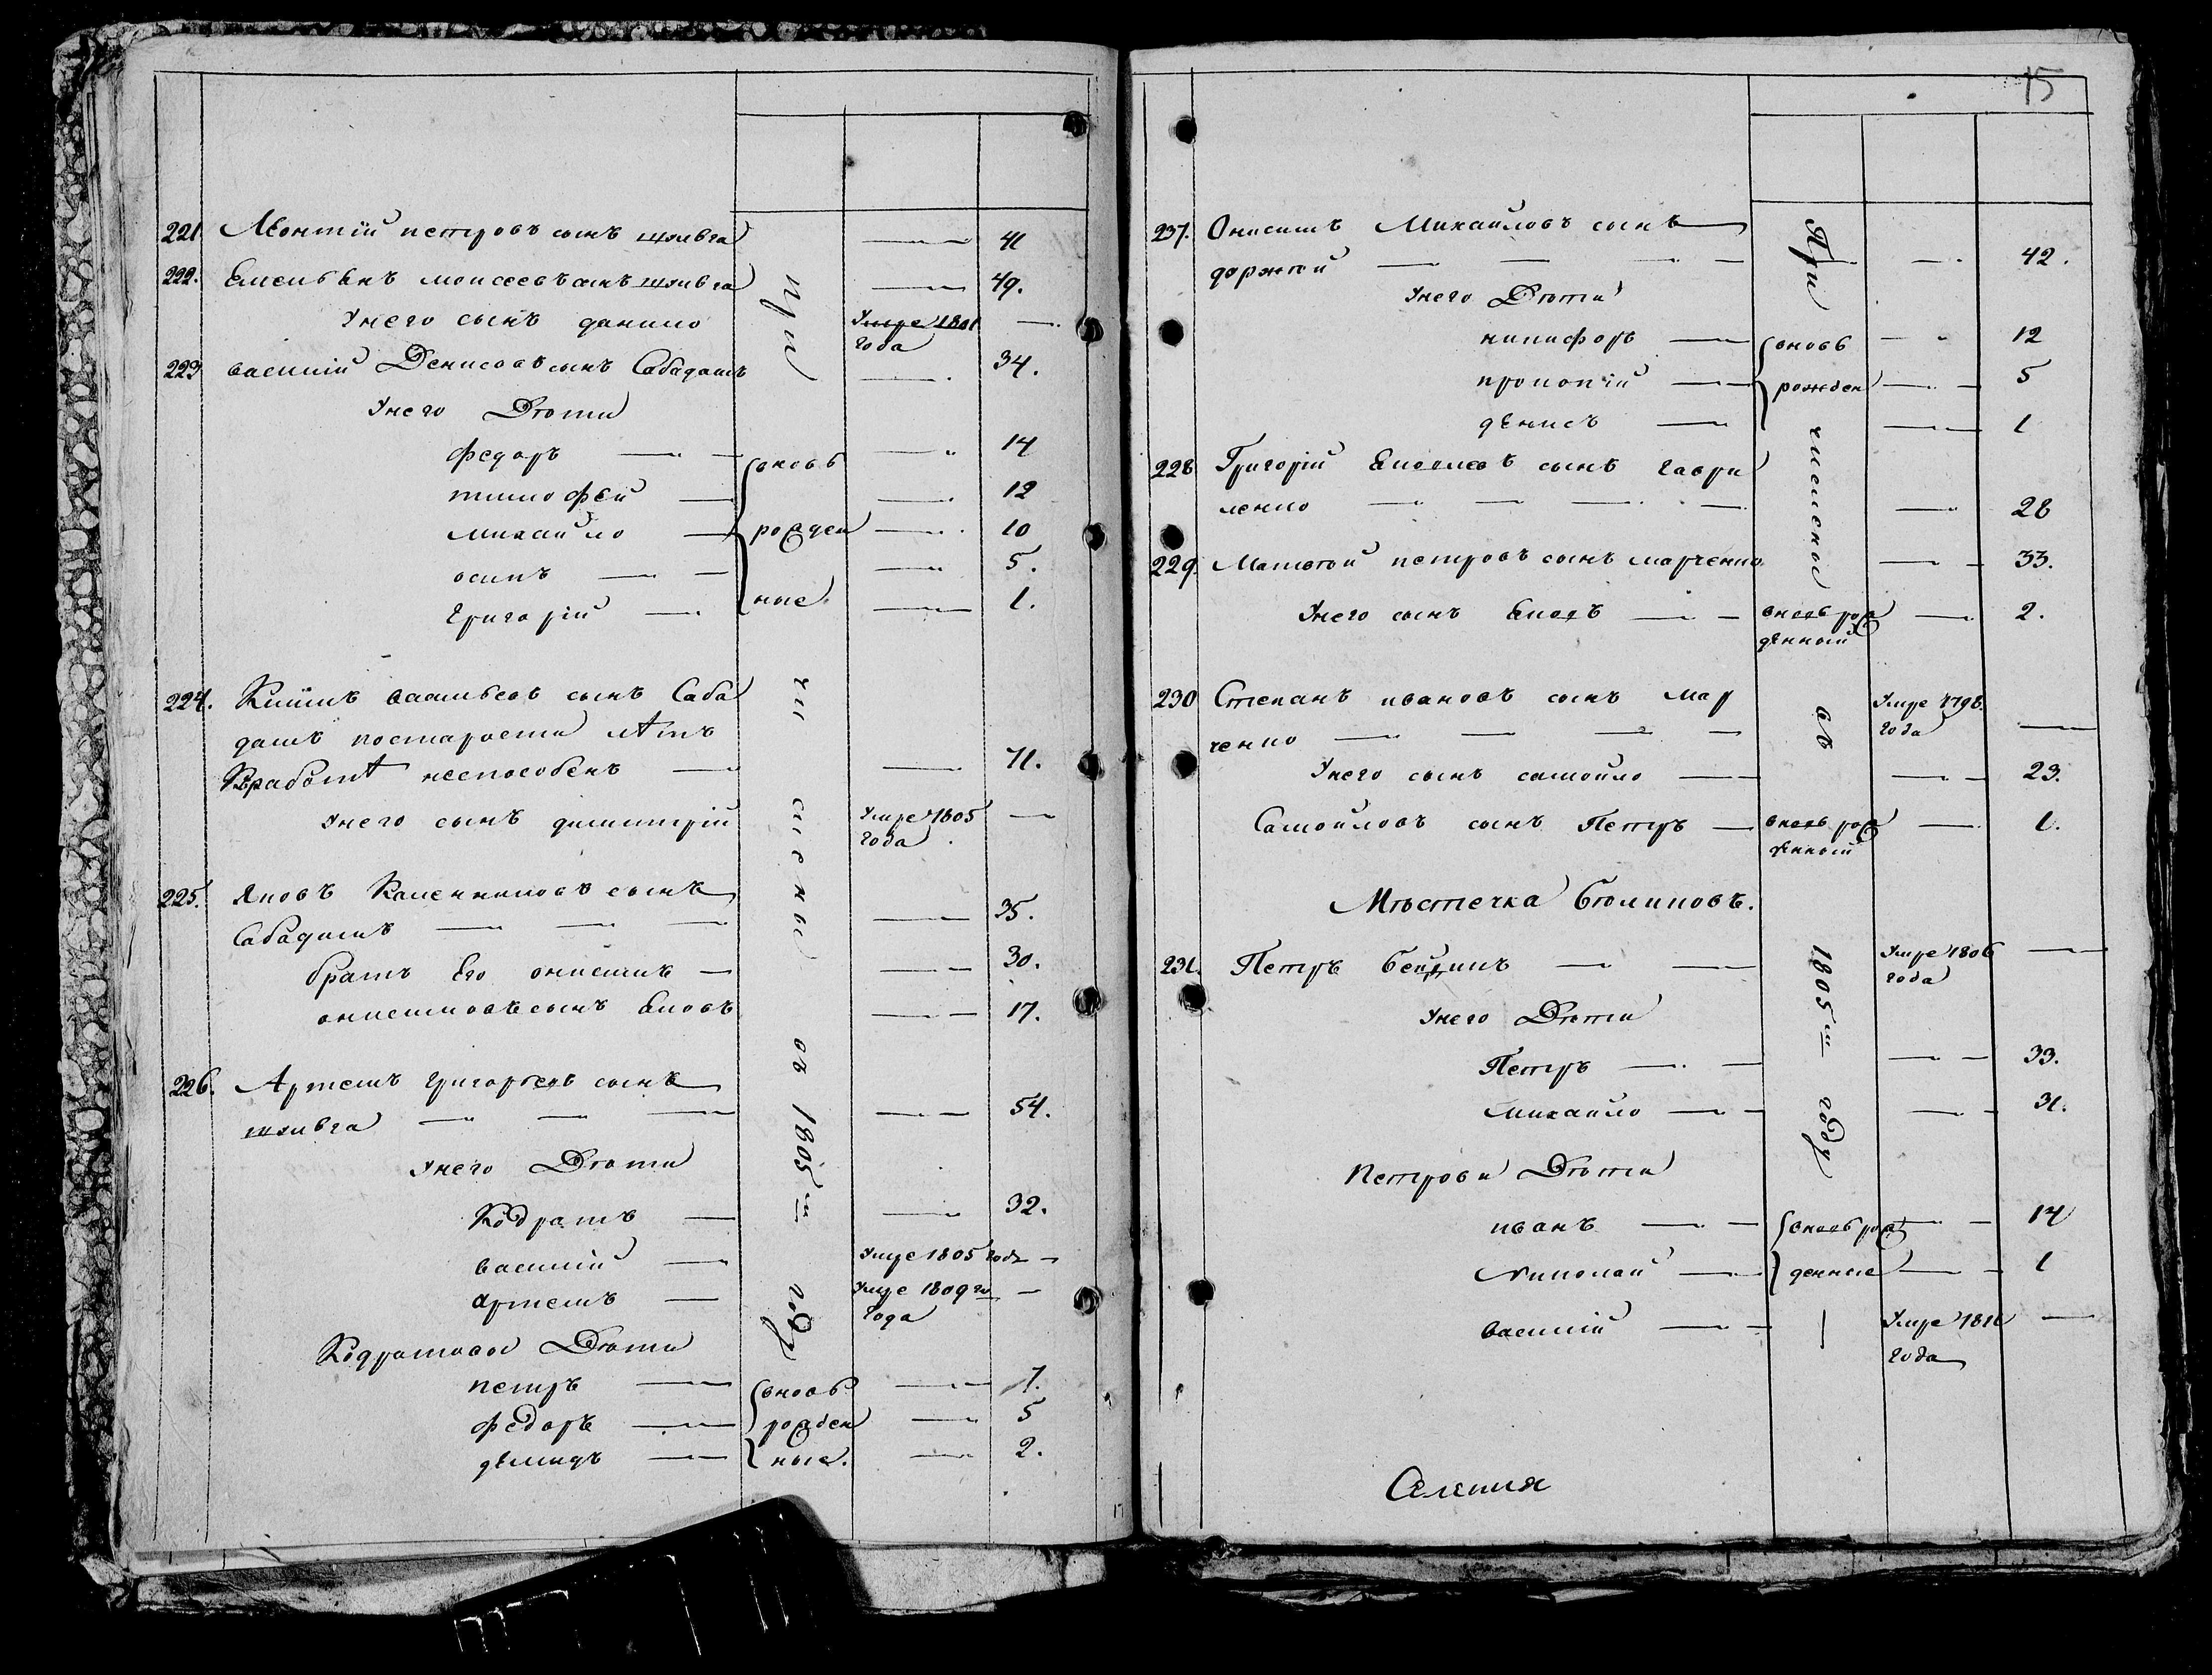 221. Леонтій петровъ сынъ — 41
222. Емельянъ моисеевъ сынъ — 49.
Унего сынъ данило Умре 1801 —
года
223 василій Денисовъ сынъ Сабадашъ — 34.
Унего Дѣти
федоръ — вновь — 14
тимофей — 12
михайло — рожден — 10
осипъ — 5.
григорій — ные. — 1.
224. васильевъ сынъ Саба
дашъ постарости лѣтъ
Кработѣ неспособенъ — 71.
Унего сынъ димитрій Умре 1805 —
года
225. Яковъ сынъ
Сабадашъ — 35.
братъ Его онисимъ — 30.
онисимовъ сынъ Яковъ — 17.
226. Артемъ григорьевъ сынъ
— 54.
Унего Дѣти
Кодратъ — 32.
василій — Умре 1805 года —
артемъ — Умре 1809 го —
года
Кодратовы Дѣти
петръ — вновь — 7.
федоръ — рожден — 5
демидъ — ные. — 2.
при числены въ 1805м году
15
237. Онисимъ Михайловъ сынъ
— 42.
Унего Дѣти
никифоръ — вновь — 12
прокопій — рожден — 5
денисъ — 1
228 Григорій сынъ гаври
ленко — 28
229. Матвей петровъ сынъ марченко — 33.
Унего сынъ Яковъ — вновь рож — 2.
денный
230 Степанъ ивановъ сынъ мар Умре 1798
ченко — года —
Унего сынъ самойло — 23.
Самойловъ сынъ Петръ — вновь рож — 1.
денный
Мѣстечка
231. Петръ — Умре 1806 —
года
Унего Дѣти
Петръ — 33.
михайло — 31.
Петрови Дѣти
иванъ — вновь рож — 14
николай — денные — 1
василій — Умре 1811 —
года
При числены въ 1805м году
Селения